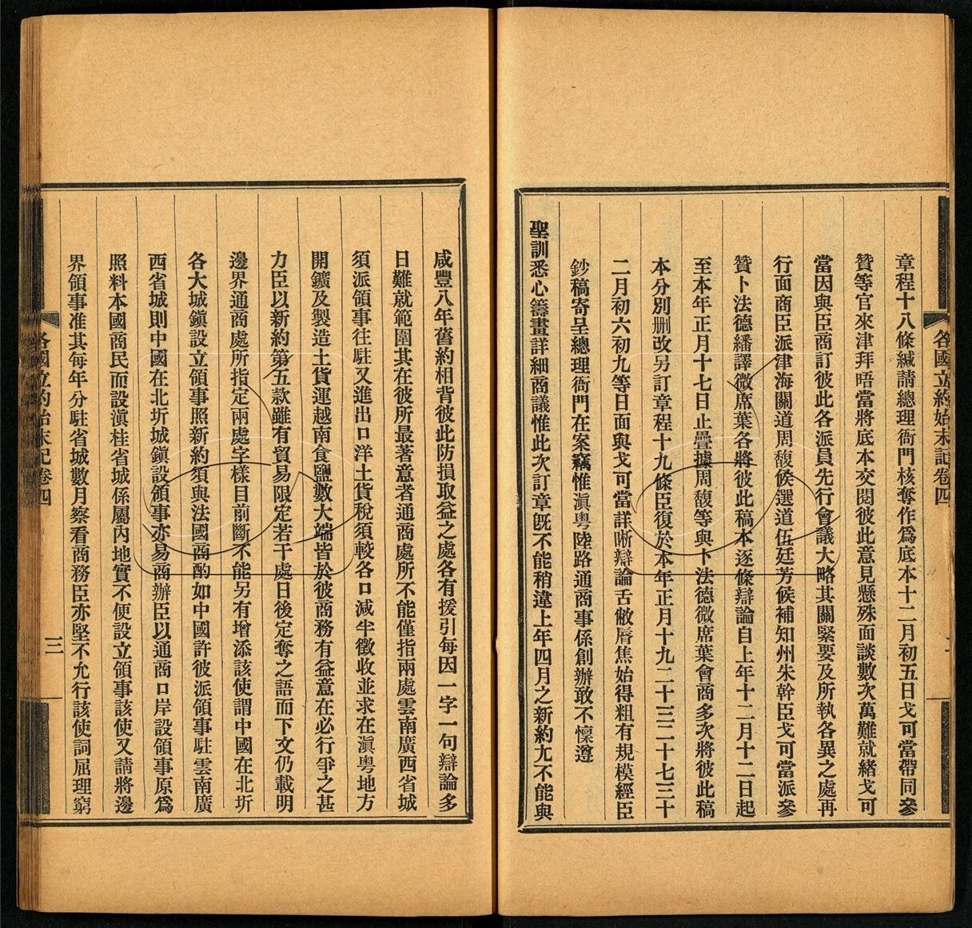 章程十八條緘請總理衙門核奪作爲底本十二月初五日戈可當帶同參
贊等官來津拜晤當將底本交閱彼此意見懸殊面談數次萬難就緒戈可
當因與臣商訂彼此各派員先行會議大略其關緊要及所執各異之處再
行面商臣派津海關道周馥候選道伍廷芳候補知州朱幹臣戈可當派參
贊卜法德繙譯微席葉各將彼此稿本逐條辯論自上年十二月十二日起
至本年正月十七日止疊據周馥等與卜法德微席葉會商多次將彼此稿
本分別删改另訂章程十九條臣復於本年正月十九二十三二十七三十
二月初六初九等日面與戈可當詳晰辯論舌敝脣焦始得粗有規模經臣
鈔稿寄呈總理衙門在案竊惟滇粵陸路通商事係創辦敢不懍遵
聖訓悉心籌畫詳細商議惟此次訂章旣不能稍違上年四月之新約尤不能與
各國立約始末記卷四
咸豐八年舊約相背彼此防損取益之處各有援引每因一字一句辯論多
日難就範圍其在彼所最著意者通商處所不能僅指兩處雲南廣西省城
須派領事往駐又進出口洋土貨稅須較各口減半徵收並求在滇粵地方
開鑛及製造土貨運越南食鹽數大端皆於彼商務有益意在必行爭之甚
力臣以新約第五款雖有貿易限定若干處日後定奪之語而下文仍載明
邊界通商處所指定兩處字樣目前斷不能另有增添該使謂中國在北圻
各大城鎭設立領事照新約須與法國商酌如中國許彼派領事駐雲南廣
西省城則中國在北圻城鎭設領事亦易商辦臣以通商口岸設領事原爲
照料本國商民而設滇桂省城係屬內地實不便設立領事該使又請將邊
界領事准其每年分駐省城數月察看商務臣亦堅不允行該使詞屈理窮
各國立約始末記卷四
三